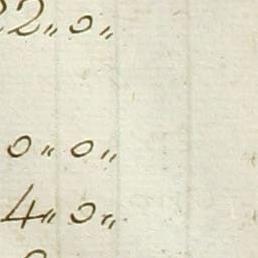 22„ 0„
0„ 0„
4„ 0„